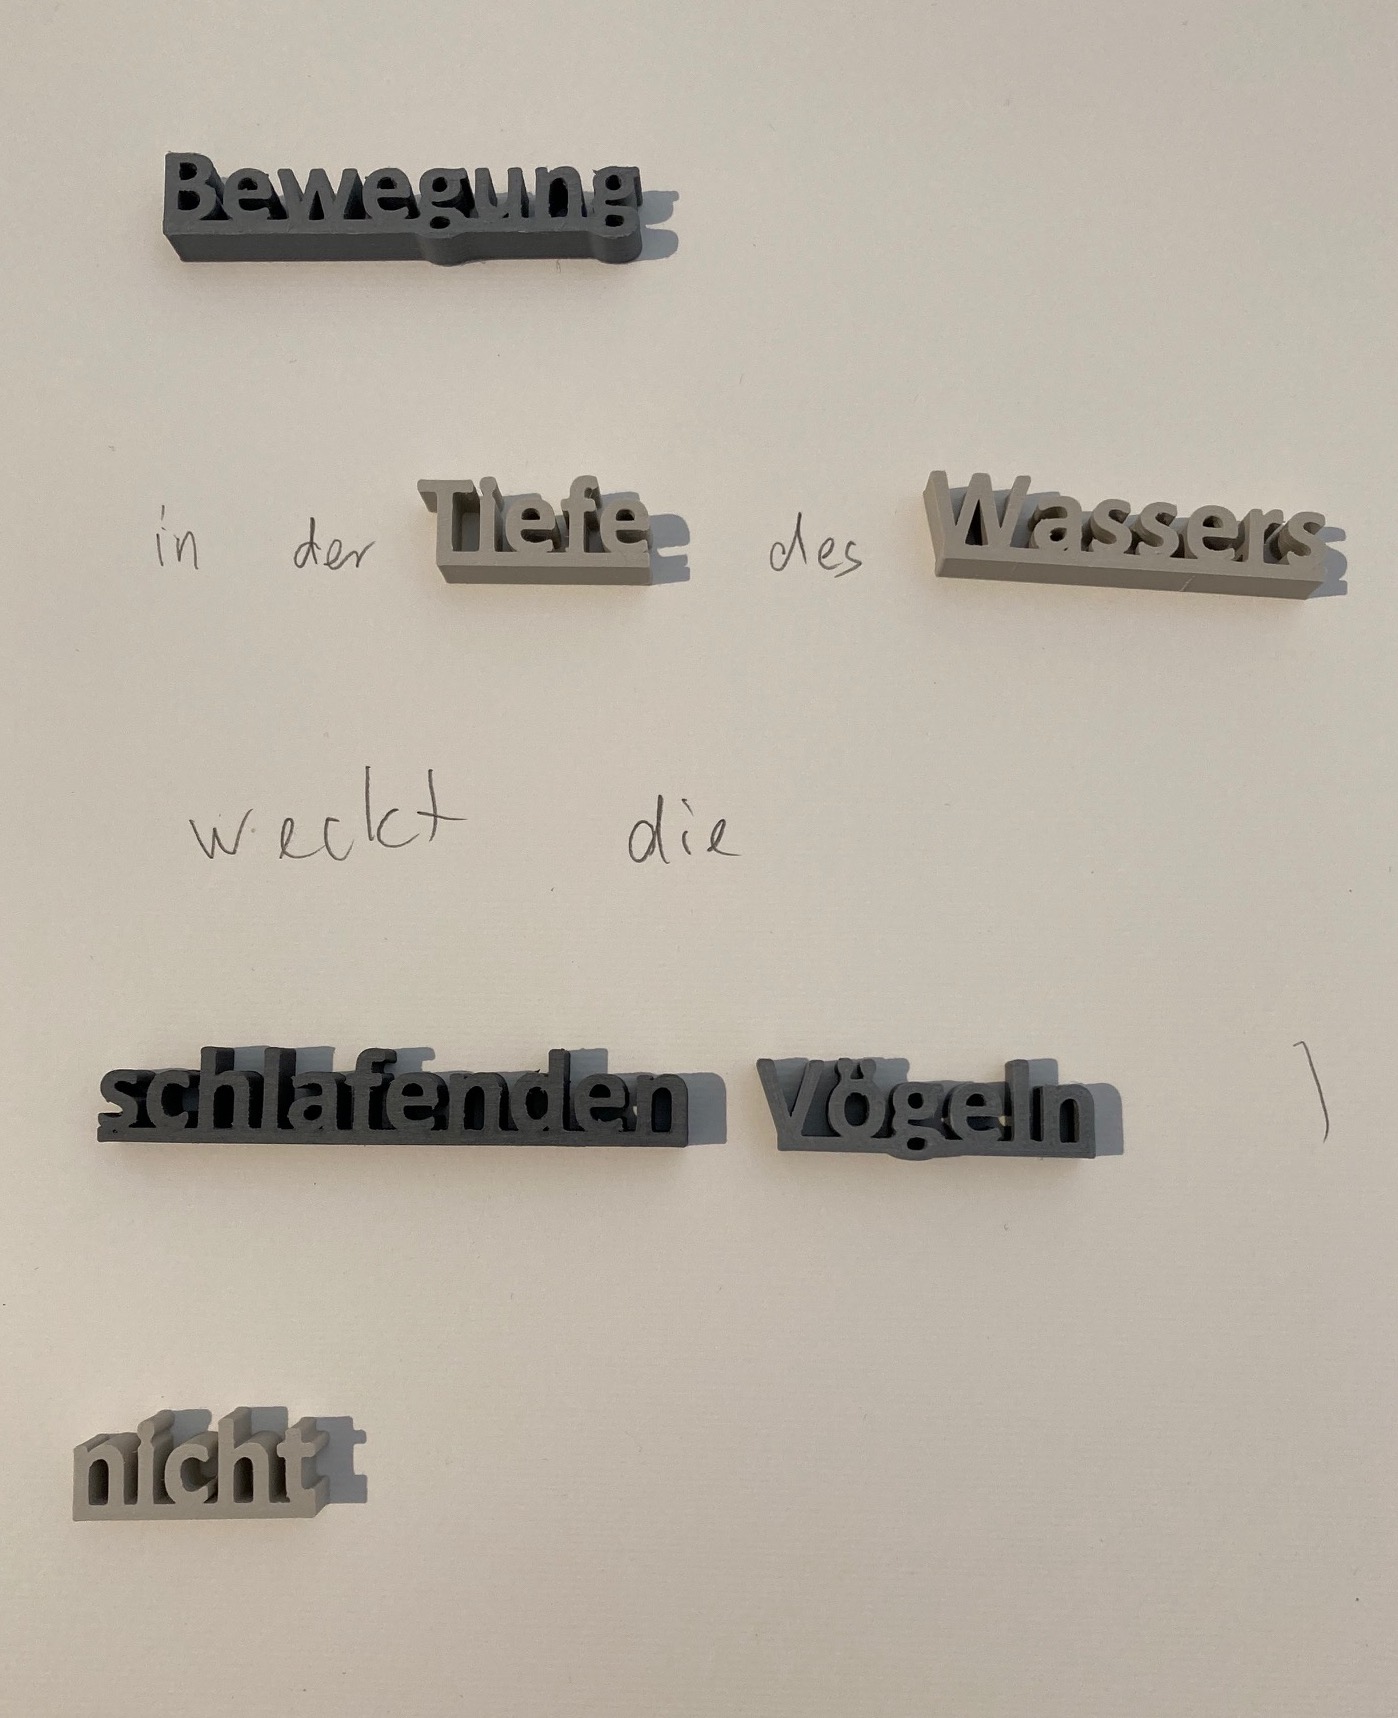 Bewegung
in der Tiefe des Wassers
weckt die
schlafenden Vögeln )
nicht